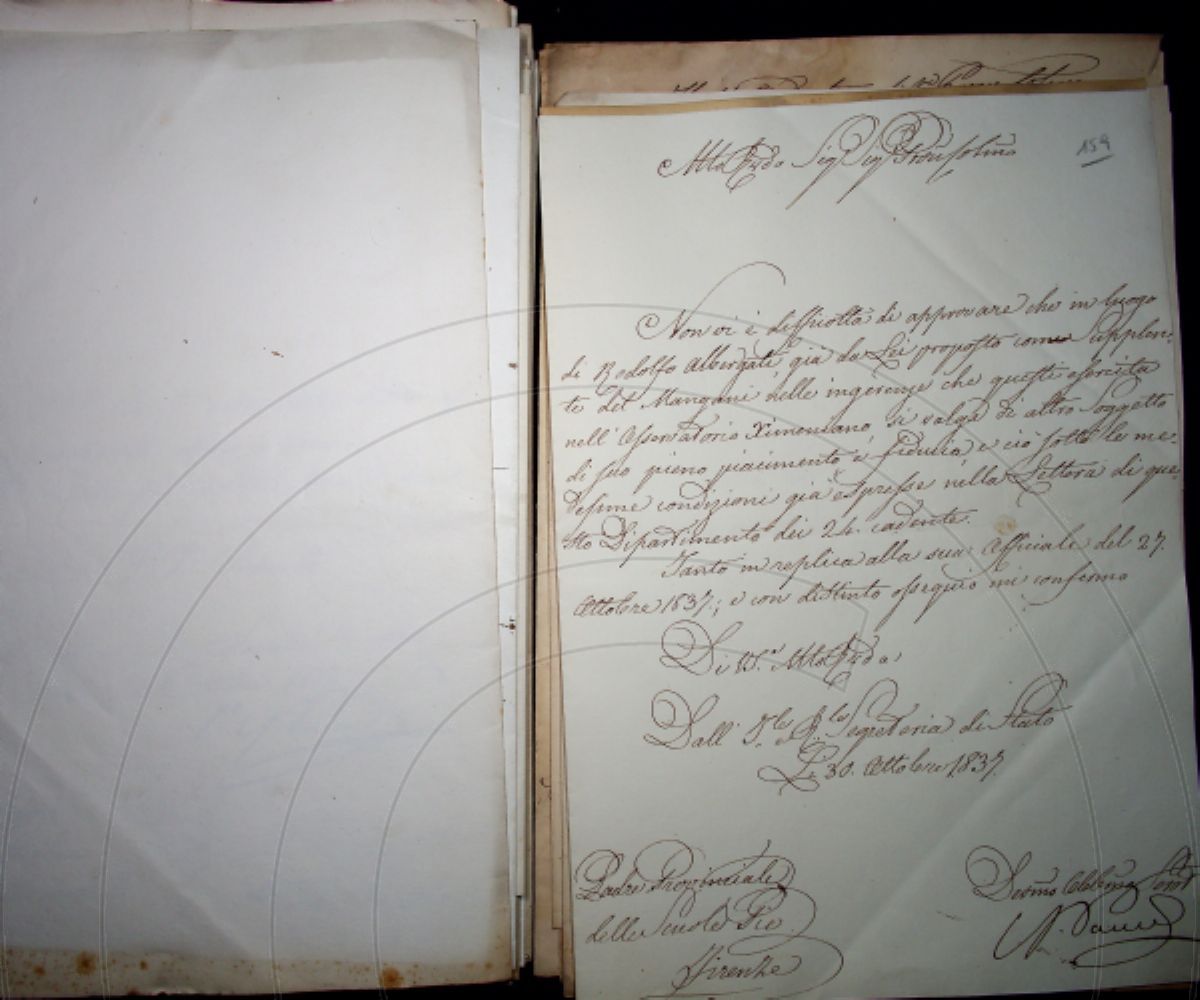 Molto Rndo Sig Sig Pron Colmo
159
Non vi è difficoltà di approvare che in luogo
di Rodolfo Albergati già da Lei proposto come Supplen-
te del Mangani nelle ingerenze che questi esercita
nell' Osservatorio Ximeniano, si valga di altro Soggetto
di suo pieno piacimento e fiducia e ciò sotto le me-
desime condizioni già espresse nella Lettera di que-
sto Dipartimento dei 24. cadente.
Tanto in replica alla sua Officiale del 27.
Ottobre 1837.; e con distinto ossequio mi confermo
Di VS. Molto Rnda
Dall' I. e R. Segreteria di Stato
Li 30. Ottobre 1837.
Padre Provinciale
delle Scuole Pie
Firenze
Devmo Obblmo Servit